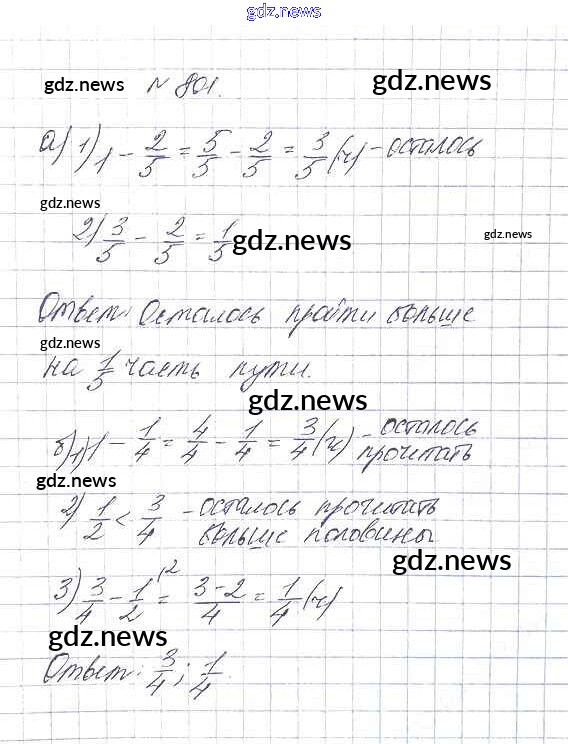 gdz.news
gdz.news № 801. gdz.news
а) 1) 1 - 2/5 = 5/5 - 2/5 = 3/5 (ч) - осталось
gdz.news
2) 3/5 - 2/5 = 1/5 gdz.news gdz.news
Ответ: Осталось пройти больше
gdz.news
на 1/5 часть пути.
gdz.news
б) 1) 1 - 1/4 = 4/4 - 1/4 = 3/4 (ч) - осталось
прочитать
gdz.news
2) 1/2 < 3/4 - осталось прочитать
больше половины
gdz.news
3) 3/4 - 1/2 (2 = 3-2/4 = 1/4 (ч)
gdz.news
Ответ: 3/4; 1/4.